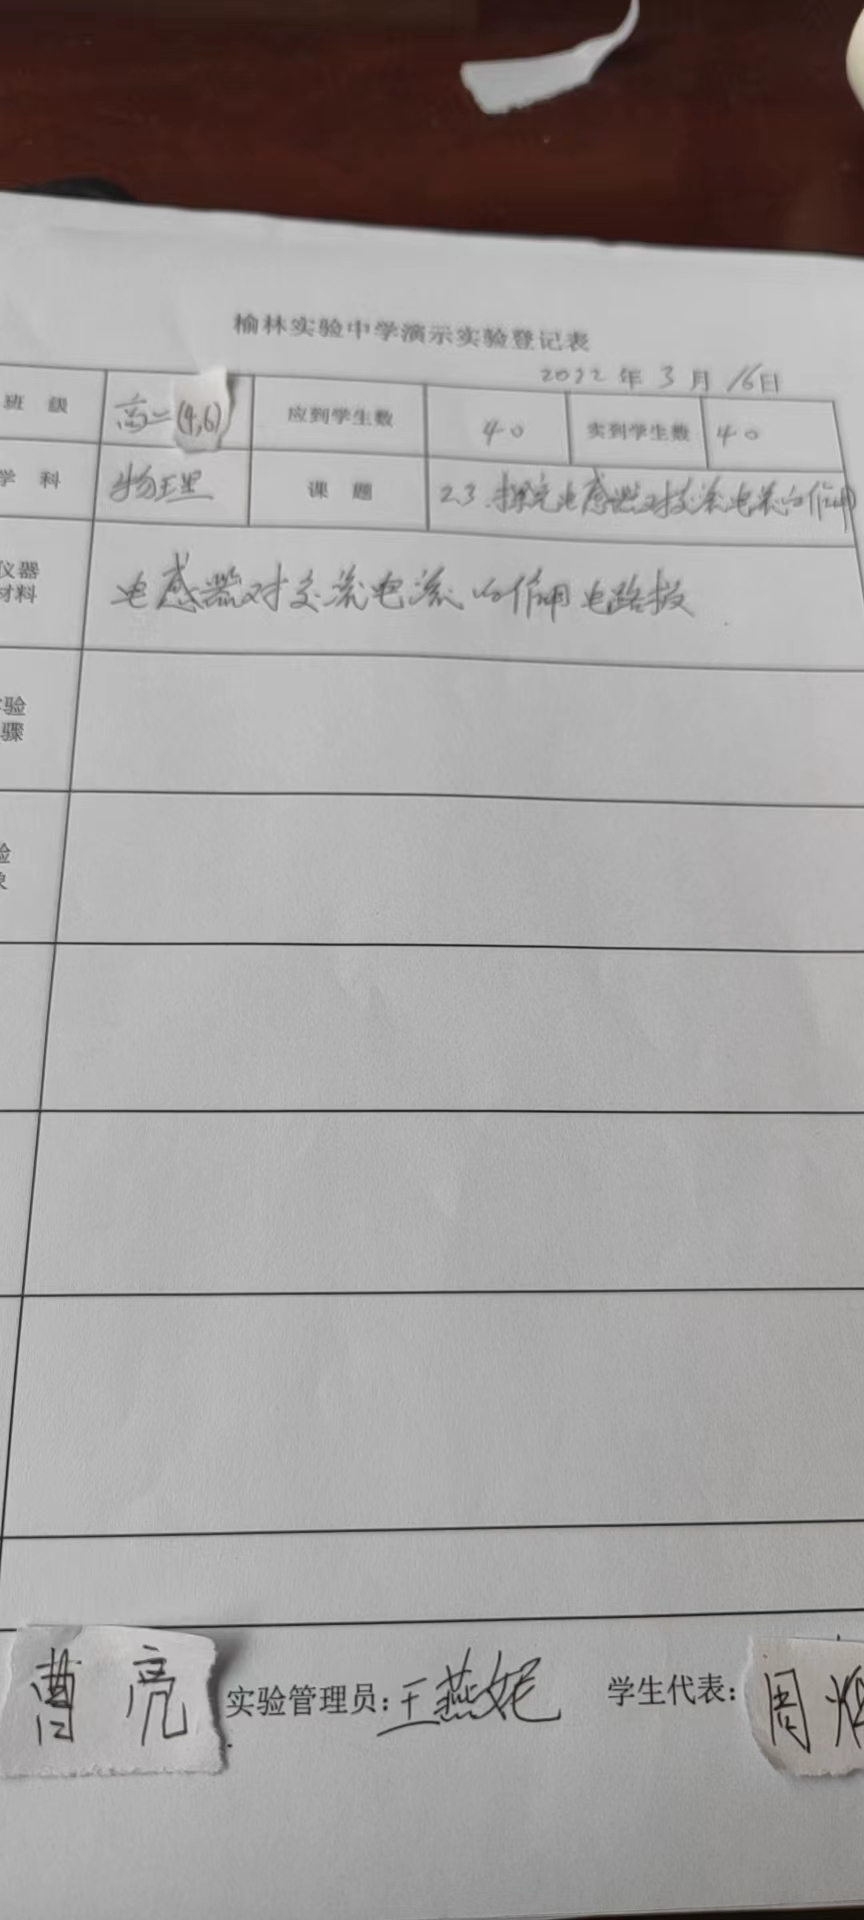 榆林实验中学演示实验登记表
2022 年 3 月 16日
班 级 高二(4,6) 应到学生数 40 实到学生数 40
学 科 物理 课 题 2.3.探究电感器对交流电流的作用
仪器 电感器对交流电流的作用电路板
材料
验
骤
验
曹 亮 实验管理员:王燕妮 学生代表:周